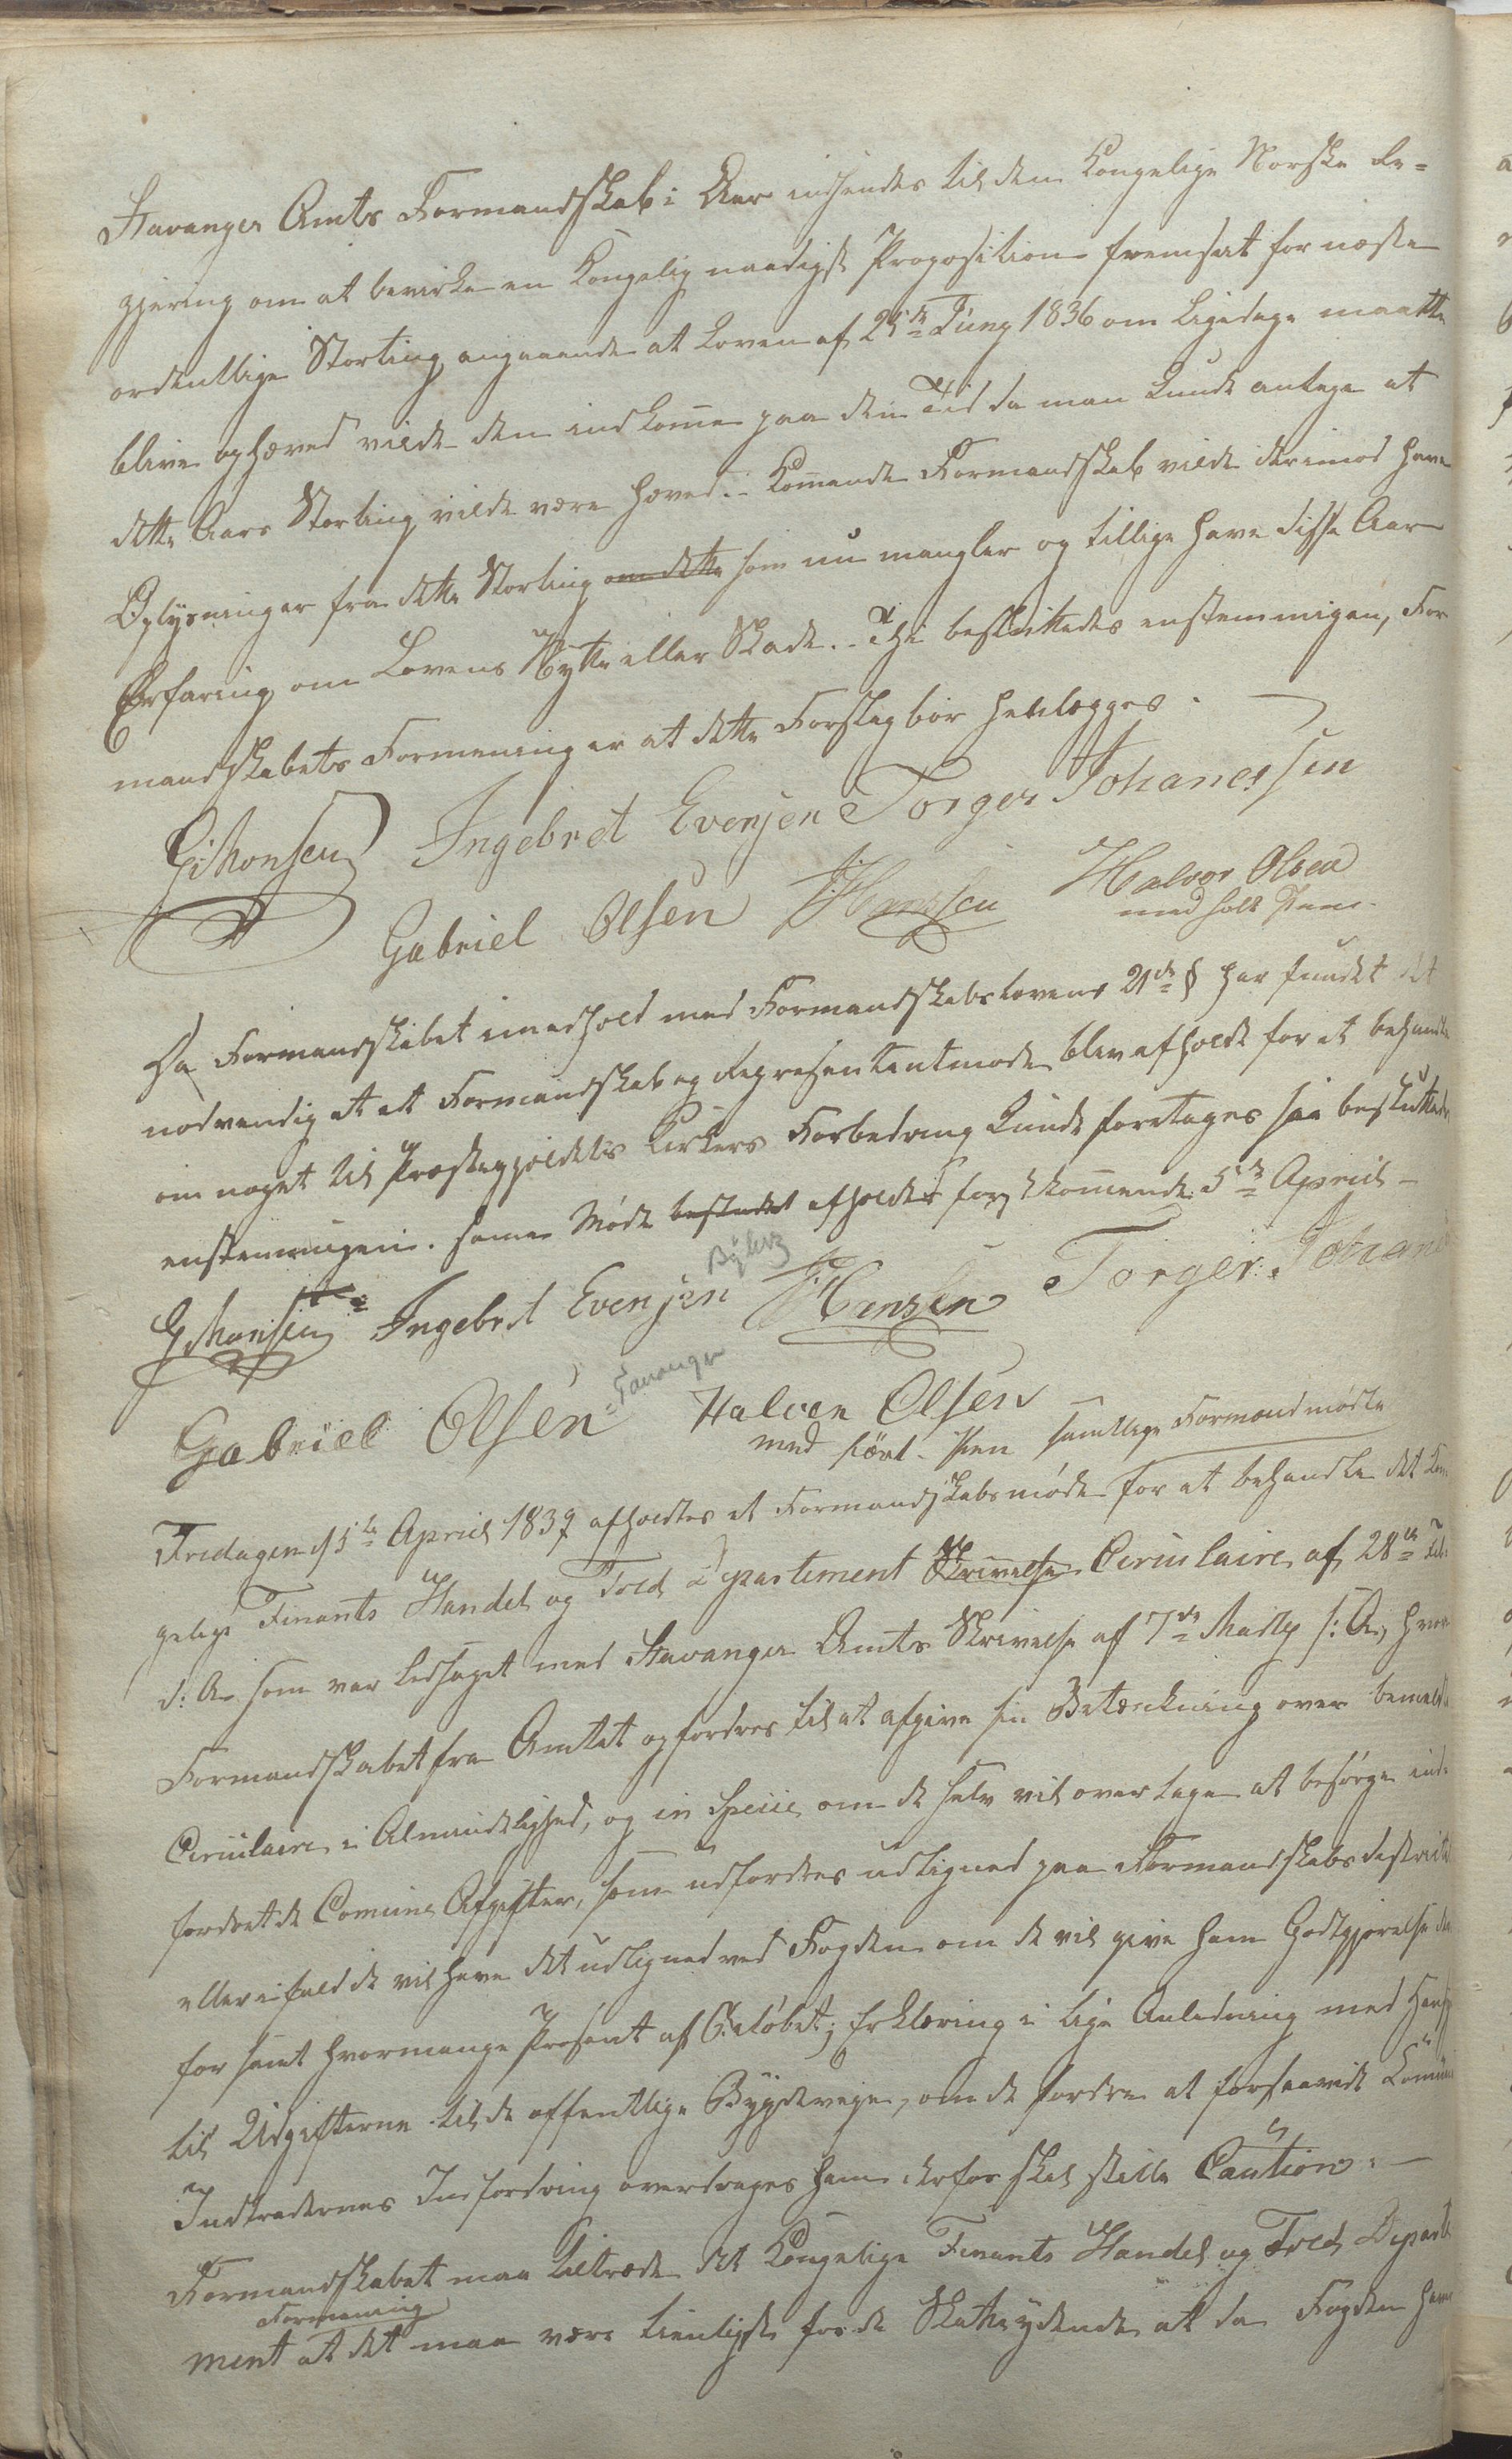 Stavanger Amts Formandskab i Aar indsendes til den Kongelige Norske Re-
gjering om at bevirke en Kongelig naadigst Proposition fremsat for næste
ordentlige Storting angaaende at Loven af 25de Juny 1836 om Ligedage maatte
blive ophæved vilde den indkomme paa den Tid da man kunde antage at
dette Aars Storting vilde være hæved. - Kommende Formandskab vilde derimod have
Oplysninger fra dette Storting om dette som nu mangler og tillige have disse Aars
Erfaring om Lovens Nytte eller Skade. - Thi besluttedes enstemmigen, For
mandskabets Formening er at dette Forslag bør henlægges.
G Monsen Ingebret Evensen Torger Johanessen
Gabriel Olsen Hansen Halvor Olsen
med holt Pen.
Da Formandskabet i medhold med Formandskabslovens 21de § har fundet det
nødvendig at et Formandskab og Repræsentantmøde blev afholdt for at behandle
om noget til Præstegjeldets Kirkers Forbedring kunde foretages saa besluttedes
enstemmigen. samme Møde bestedet afholdes førstkommende 5te Apriil -
G Monsen Ingebret Evensen Hansen Torger Johane
Gabriel Olsen Halvor Olsen
med ført. Pen samtlige Formænd mødte
Fredagen d 5te Apriil 1839 afholdtes et Formandskabsmøde for at behandle det Kon
gelige Finants Handel og Told Departement Skrivelse Circulaire af 28de Feb
d: A. som var ledsaget med Stavanger Amts Skrivelse af 7de Marty s: A, hvor
Formandskabet fra Amtet opfordres til at afgive sin Betænkning over bemeldte
Circulaire i Almindelighed, og in Specie om de selv vil overtage at besørge ind-
fordret de Comune Afgifter, som udfordres udlignet paa Formandskabsdistrictet
eller ifald de vil have det udlignet ved Fogden om de vil give ham Godtgjørelse der
for samt hvormange Procent af Beløbet; Erklæring i lige Anledning med Hensyn
til Udgifterne til de offentlige Bygdeveje, om de fordre at forsaavidt Comune
Indtædternes Indfordring overdrages ham derfor skal stille Caution. -
Formandskabet maa tiltræde det Kongelige Finants Handel og Told Departe
Formening
ment at det maa være tienligst for de Skatteydende at da Fogden have